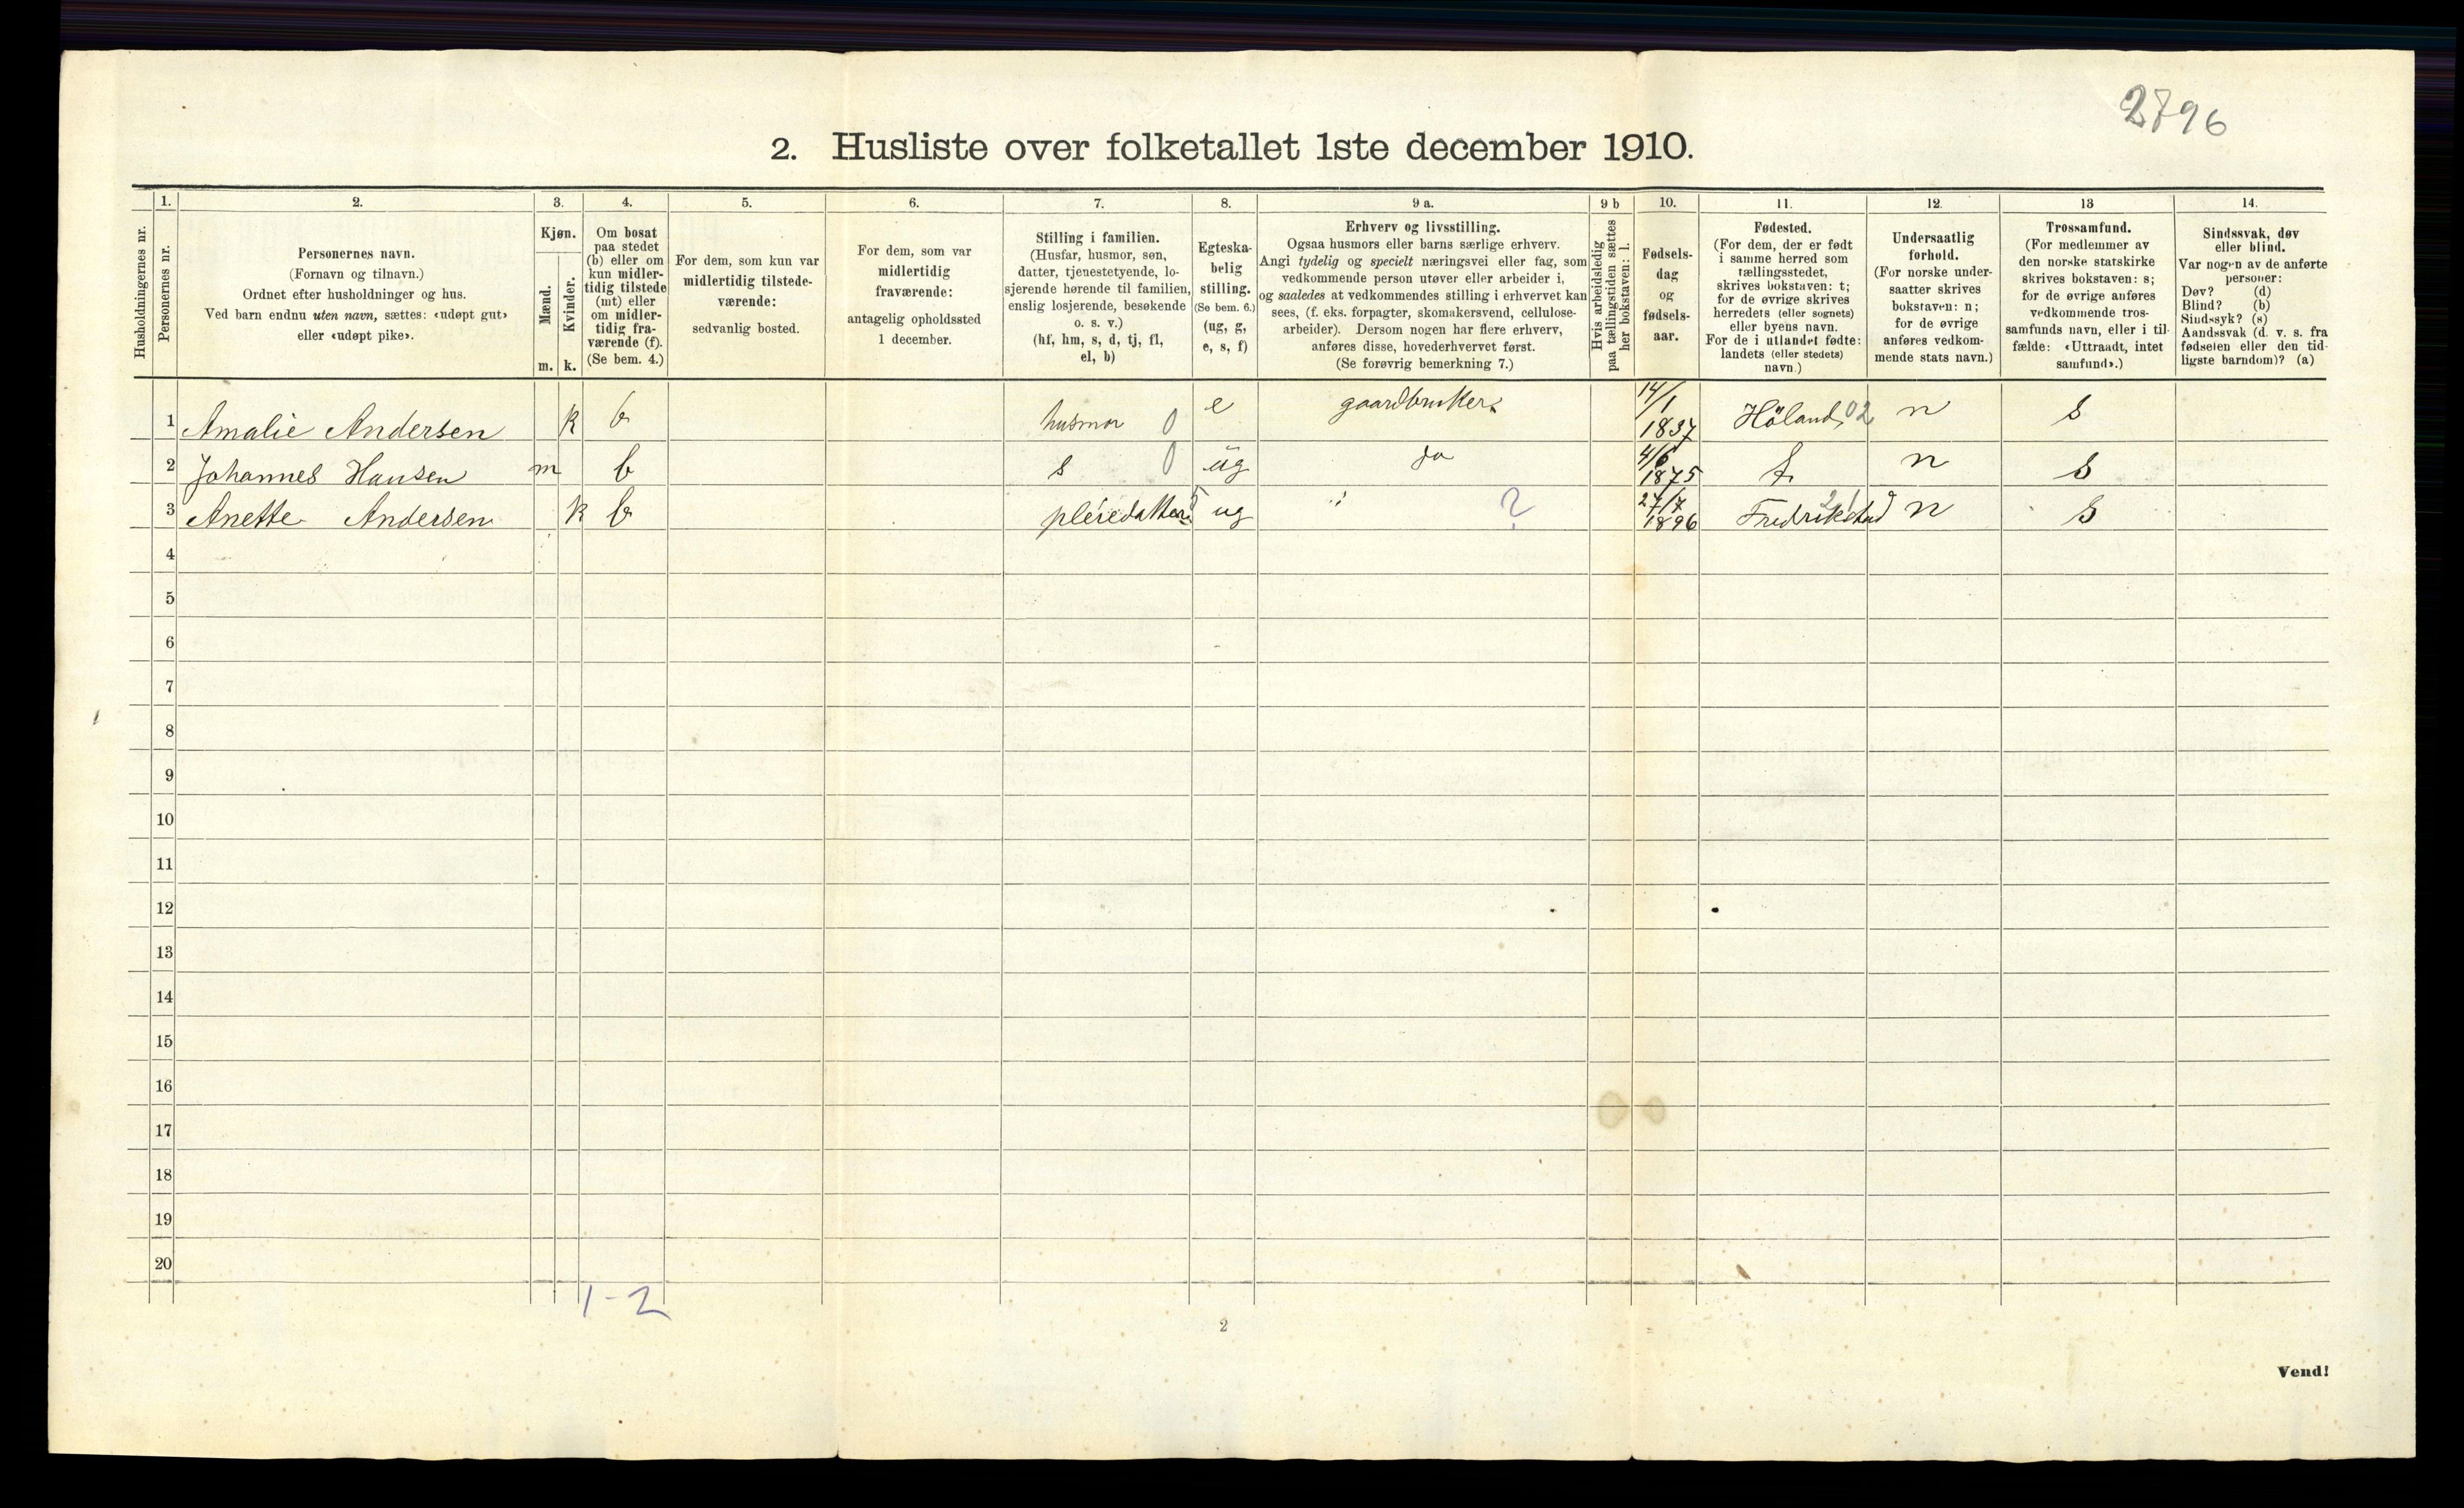 2796
2. Husliste over folketallet 1ste december 1910.
Husholdningernes nr.
1.
Personernes nr.
2.
Personernes navn.
(Fornavn og tilnavn.)
Ordnet efter husholdninger og hus.
Ved barn endnu uten navn, sættes: «udøpt gut»
eller «udøpt pike».
3.
Kjøn.
Mænd.
Kvinder.
m. k.
4.
Om bosat
paa stedet
(b) eller om
kun midler-
tidig tilstede
(mt) eller
om midler-
tidig fra-
værende (f).
(Se bem. 4.)
5.
For dem, som kun var
midlertidig tilstede-
værende:
sedvanlig bosted.
6.
For dem, som var
midlertidig
fraværende:
antagelig opholdssted
1 december.
7.
Stilling i familien.
(Husfar, husmor, søn,
datter, tjenestetyende, lo-
sjerende hørende til familien,
enslig losjerende, besøkende
o. s. v.)
(hf, hm, s, d, tj, fl,
el, b)
8.
Egteska-
belig
stilling.
(Se bem. 6.)
(ug, g,
e, s, f)
9 a.
Erhverv og livsstilling.
Ogsaa husmors eller barns særlige erhverv.
Angi tydelig og specielt næringsvei eller fag, som
vedkommende person utøver eller arbeider i,
og saaledes at vedkommendes stilling i erhvervet kan
sees, (f. eks. forpagter, skomakersvend, cellulose-
arbeider). Dersom nogen har flere erhverv,
anføres disse, hovederhvervet først.
(Se forøvrig bemerkning 7.)
9 b
Hvis arbeidsledig
paa tællingstiden sættes
her bokstaven: l.
10.
Fødsels-
dag
og
fødsels-
aar.
11.
Fødested.
(For dem, der er født
i samme herred som
tællingsstedet,
skrives bokstaven: t;
for de øvrige skrives
herredets (eller sognets)
eller byens navn.
For de i utlandet fødte:
landets (eller stedets)
navn.)
12.
Undersaatlig
forhold.
(For norske under-
saatter skrives
bokstaven: n;
for de øvrige
anføres vedkom-
mende stats navn.)
13
Trossamfund.
(For medlemmer av
den norske statskirke
skrives bokstaven: s;
for de øvrige anføres
vedkommende tros-
samfunds navn, eller i til-
fælde: «Uttraadt, intet
samfund».)
14.
Sindssvak, døv
eller blind.
Var nogen av de anførte
personer:
Døv? (d)
Blind? (b)
Sindssyk? (s)
Aandssvak (d. v. s. fra
fødselen eller den tid-
ligste barndom)? (a)
1 Amalie Andersen k b husmor 0 e gaardbruker 14/1 1837 Höland 02 n s
2 Johannes Hansen m b s 0 ug do 4/6 1875 t n s
3 Anette Andersen k b pleiedatter ug ? 27/7 1896 Fredrikstad n s
4
5
6
7
8
9
10
11
12
13
14
15
16
17
18
19
20
1-2
2
Vend!